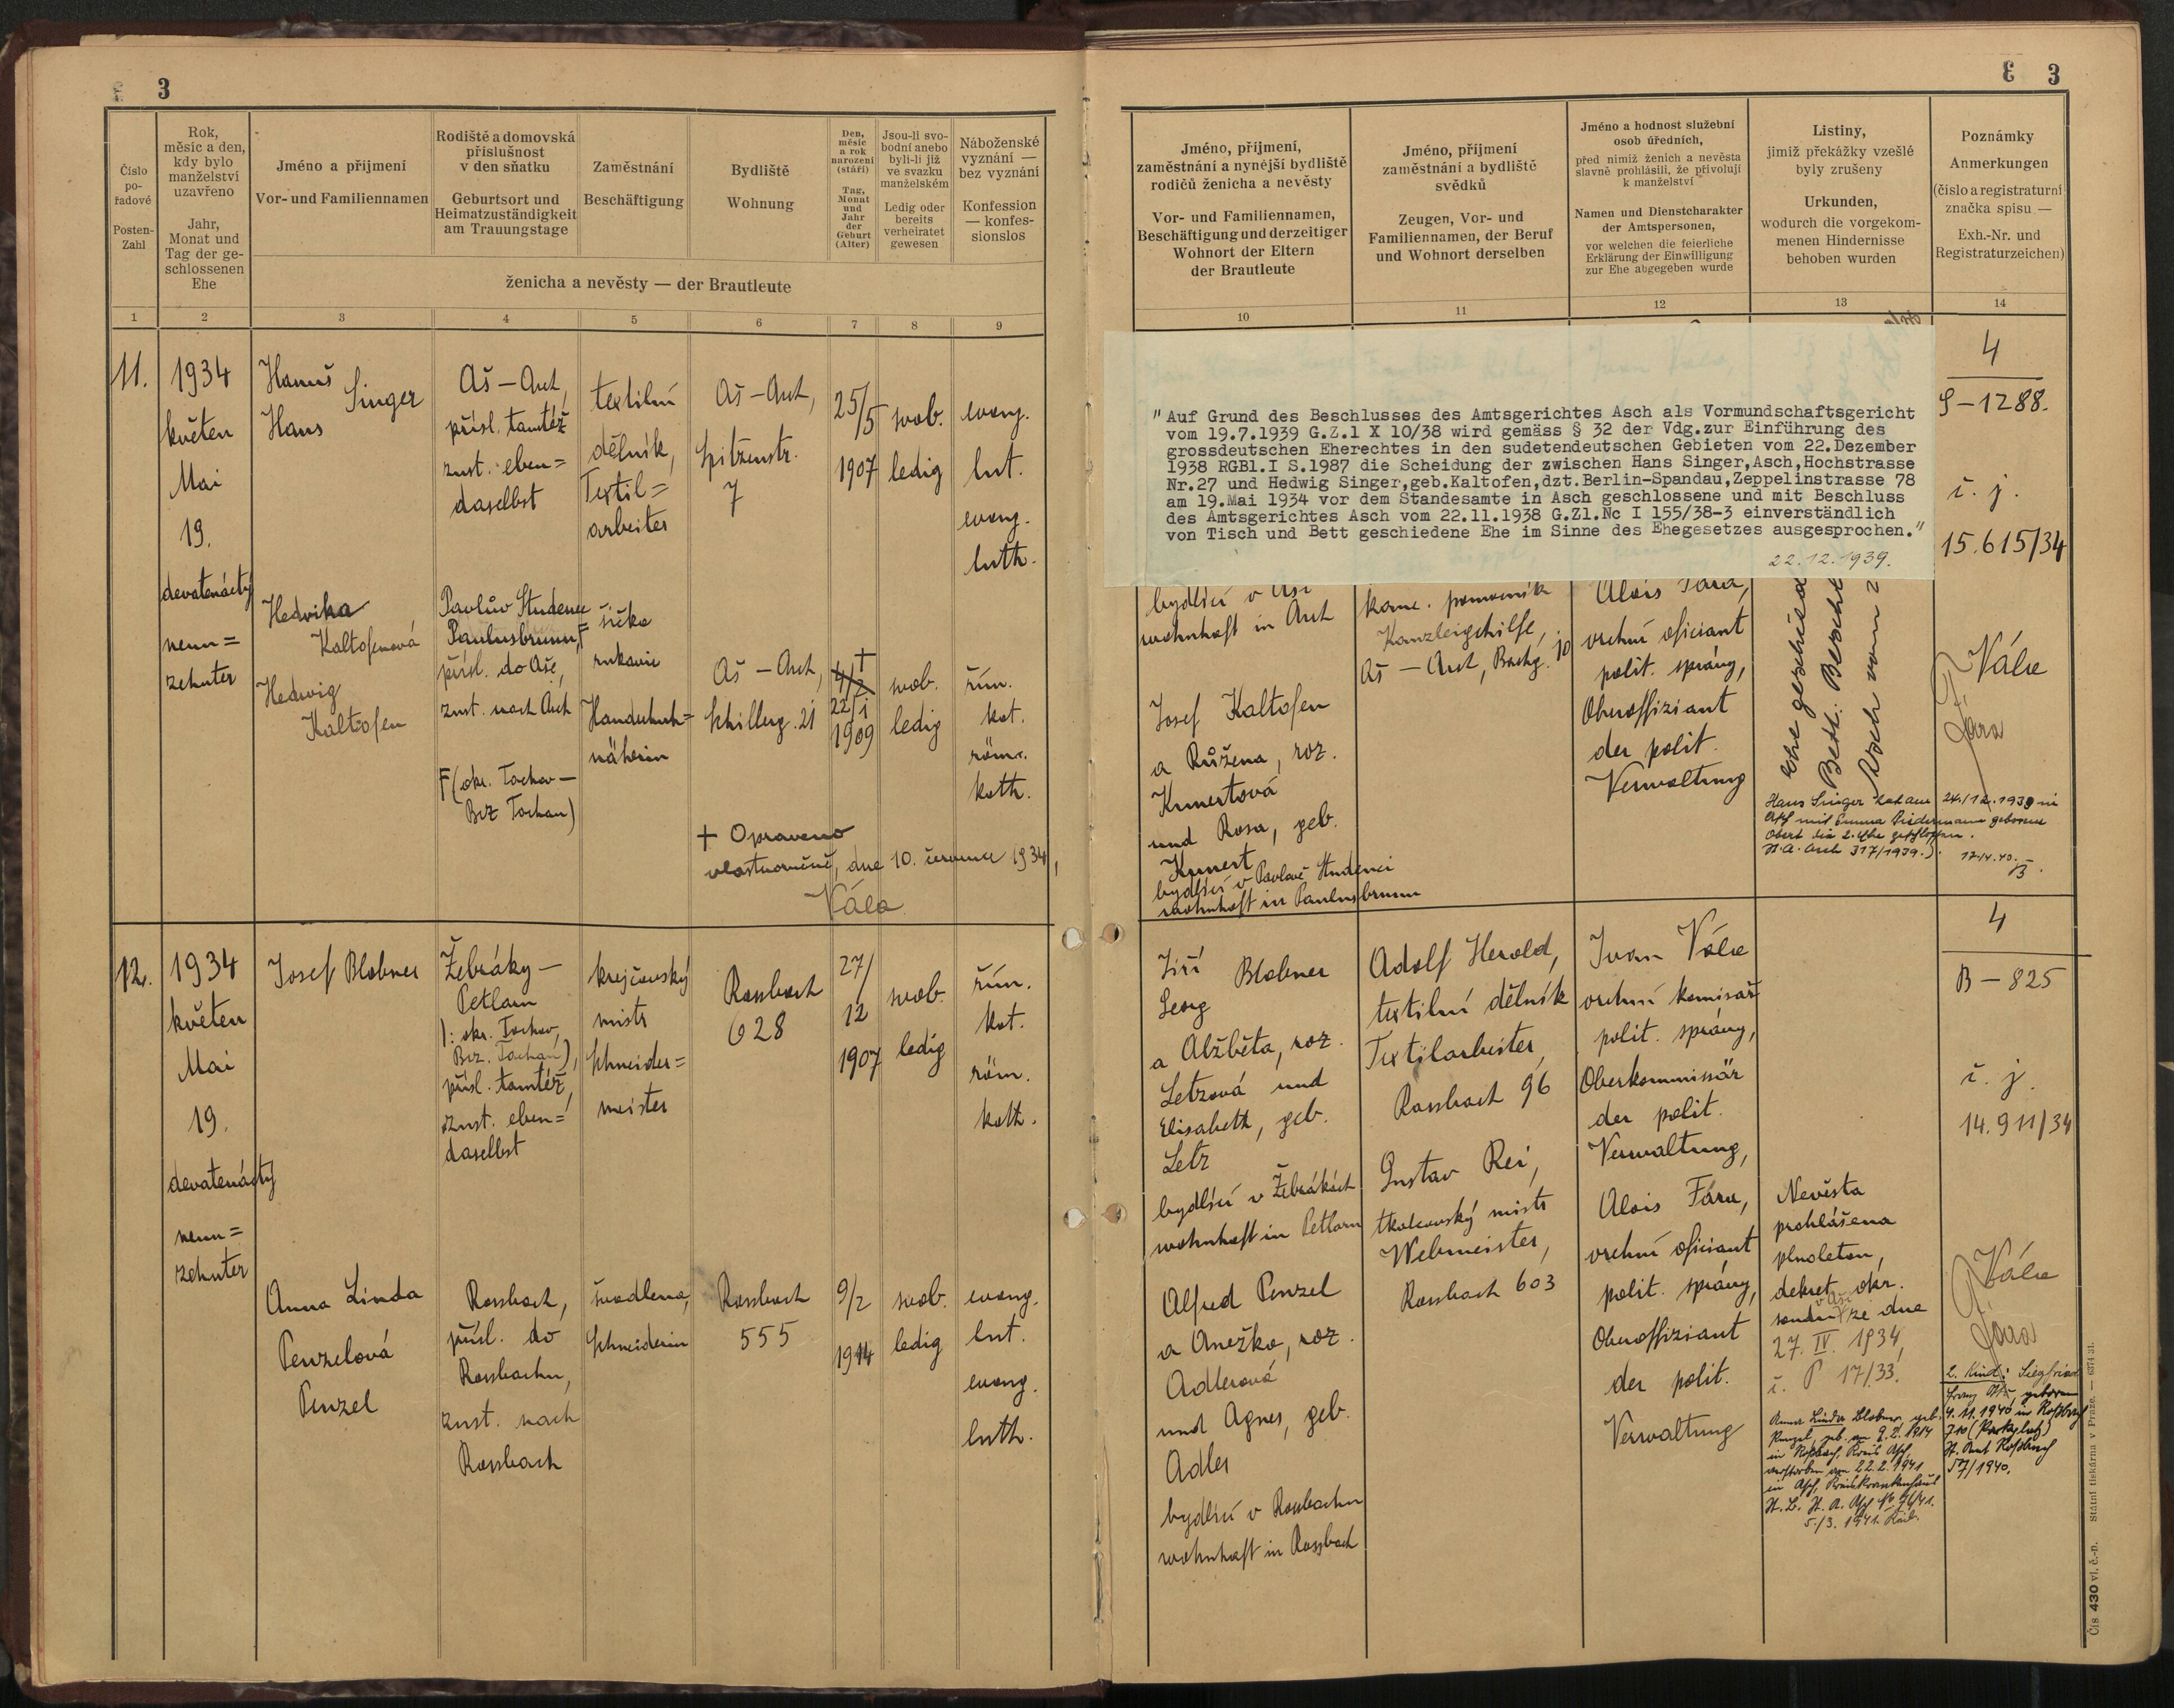 3
Číslo
po-
řadové
Posten-
Zahl
Rok,
měsíc a den,
kdy bylo
manželství
uzavřeno
Jahr,
Monat und
Tag der ge-
schlossenen
Ehe
Jméno a příjmení
Vor- und Familiennamen
Rodiště a domovská
příslušnost
v den sňatku
Geburtsort und
Heimatzuständigkeit
am Trauungstage
Zaměstnání
Beschäftigung
Bydliště
Wohnung
Den,
měsíc
a rok
narození
(stáří)
Tag,
Monat
und
Jahr
der
Geburt
(Alter)
Jsou-li svo-
bodní anebo
byli-li již
ve svazku
manželském
Ledig oder
bereits
verheiratet
gewesen
Náboženské
vyznání —
bez vyznání
Konfession
— konfes-
sionslos
ženicha a nevěsty — der Brautleute
1 2 3 4 5 6 7 8 9
11.
1934
květen
Mai
19.
devatenáctý
neun=
zehnter
Hanuš
Singer
Hans
Aš – Asch,
přísl. tamtéž
zust. eben=
daselbst
textilní
dělník,
Textil=
arbeiter
Aš – Asch,
Spitzenstr.
7
25/
5
1907
svob.
ledig
evang.
lut.
evang.
luth.
Hedvika
Kaltofenová
Hedwig
Kaltofen
Pavlův Studenec
Paulusbrunn, F
přísl. do Aše,
zust. nach Asch
F (okr. Tachov –
Bez. Tachau)
šička
rukavic
Handschuh=
näherin
Aš – Asch,
Schillerg. 21
+
4/2
22/1
1909
svob.
ledig
řím.
kat.
röm.
kath.
+ Opraveno
vlastnoručně, dne 10. července 1934,
Vála
12.
1934
květen
Mai
19.
devatenáctý
neun=
zehnter
Josef Blobner
Žebráky –
Petlarn
(: okr. Tachov,
Bez. Tachau),
přísl. tamtéž,
zust. eben=
daselbst
krejčovský
mistr
Schneider=
meister
Rossbach
628
27/
12
1907
svob.
ledig
řím.
kat.
röm.
kath.
Anna Linda
Penzelová
Penzel
Rossbach,
přísl. do
Rossbachu,
zust. nach
Rossbach
švadlena,
Schneiderin
Rossbach
555
9/2
1914
svob.
ledig
evang.
lut.
evang.
luth.
3
Jméno, příjmení,
zaměstnání a nynější bydliště
rodičů ženicha a nevěsty
Vor- und Familiennamen,
Beschäftigung und derzeitiger
Wohnort der Eltern
der Brautleute
Jméno, příjmení
zaměstnání a bydliště
svědků
Zeugen, Vor- und
Familiennamen, der Beruf
und Wohnort derselben
Jméno a hodnost služební
osob úředních,
před nimiž ženich a nevěsta
slavně prohlásili, že přivolují
k manželství
Namen und Dienstcharakter
der Amtspersonen,
vor welchen die feierliche
Erklärung der Einwilligung
zur Ehe abgegeben wurde
Listiny,
jimiž překážky vzešlé
byly zrušeny
Urkunden,
wodurch die vorgekom-
menen Hindernisse
behoben wurden
Poznámky
Anmerkungen
(číslo a registraturní
značka spisu —
Exh.-Nr. und
Registraturzeichen)
10 11 12 13 14
"Auf Grund des Beschlusses des Amtsgerichtes Asch als Vormundschaftsgericht
vom 19.7.1939 G.Z.1 X 10/38 wird gemäss § 32 der Vdg.zur Einführung des
grossdeutschen Eherechtes in den sudetendeutschen Gebieten vom 22.Dezember
1938 RGBl.I S.1987 die Scheidung der zwischen Hans Singer,Asch,Hochstrasse
Nr.27 und Hedwig Singer,geb.Kaltofen,dzt.Berlin-Spandau,Zeppelinstrasse 78
am 19.Mai 1934 vor dem Standesamte in Asch geschlossene und mit Beschluss
des Amtsgerichtes Asch vom 22.11.1938 G.Zl.Nc I 155/38-3 einverständlich
von Tisch und Bett geschiedene Ehe im Sinne des Ehegesetzes ausgesprochen."
22.12.1939.
bydlící v Aši
wohnhaft in Asch
Josef Kaltofen
a Růžena, roz.
Kunertová
und Rosa, geb.
Kunert
bydlící v Pavlově Studenci
wohnhaft in Paulusbrunn
kanc. pomocník
Kanzleigehilfe,
Aš – Asch, Bachg. 10
Alois Fára,
vrchní oficiant
polit. správy,
Oberoffiziant
der polit.
Verwaltung
Ehe geschied
Bett: Beschl
Asch vom 2
Hans Singer hat am 24./12.1939 in
Asch mit Emma Biedermann geborene
Obert die 2. Ehe geschlossen.
St.A. Asch 317/1939.)
12.4.40.
B.
4
S – 1288.
č. j.
15.615/34
Vála
Fára
Jiří
Blobner
Georg
a Alžběta, roz.
Letzová und
Elisabeth, geb.
Letz
bydlící v Žebrákách
wohnhaft in Petlarn
Alfred Penzel
a Anežka, roz.
Adlerová
und Agnes, geb.
Adler
bydlící v Rossbachu
wohnhaft in Rossbach
Adolf Herold,
textilní dělník
Textilarbeiter,
Rossbach 96
Gustav Rei,
tkalcovský mistr
Webmeister,
Rossbach 603
Ivan Vála
vrchní komisař
polit. správy,
Oberkommissär
der polit.
Verwaltung,
Alois Fára,
vrchní oficiant
polit. správy,
Oberoffiziant
der polit.
Verwaltung
Nevěsta
prohlášena
plnoletou,
dekret okr.
soudu v Aši ze dne
27. IV. 1934,
č. P 17/33.
Anna Linda Blobner, geb.
Penzel, geb. am 9.2.1914
in Roßbach, Kreis Asch,
verstorben am 22.2.1941
in Asch, Kreiskrankenhaus
St.B. St.A. Asch Nr 36/41.
5./3. 1941.
4
B – 825
č. j.
14.911/34
Vála
Fára
2. Kind: Siegfried
Franz geboren
4.11.1940 in Roßbach
710 (Parkplatz)
St. Amt Roßbach
57/1940.
Čís 430 vl. č.-n. Státní tiskárna v Praze. — 6374 31.